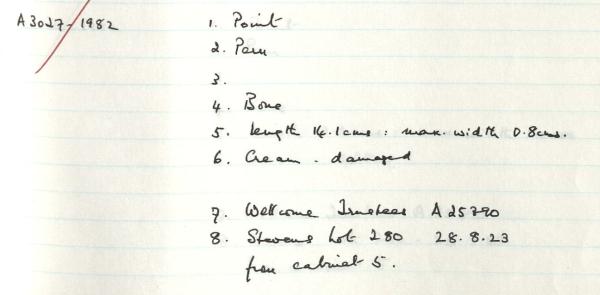 A3027-1982
1. Point
2. Peru
3.
4. Bone
5. length 14.1cms : max. width 0.8cms.
6. Cream. damaged
7. Wellcome Trustees A 25790
8. Stevens Lot 280 28.8.23
from cabinet 5.